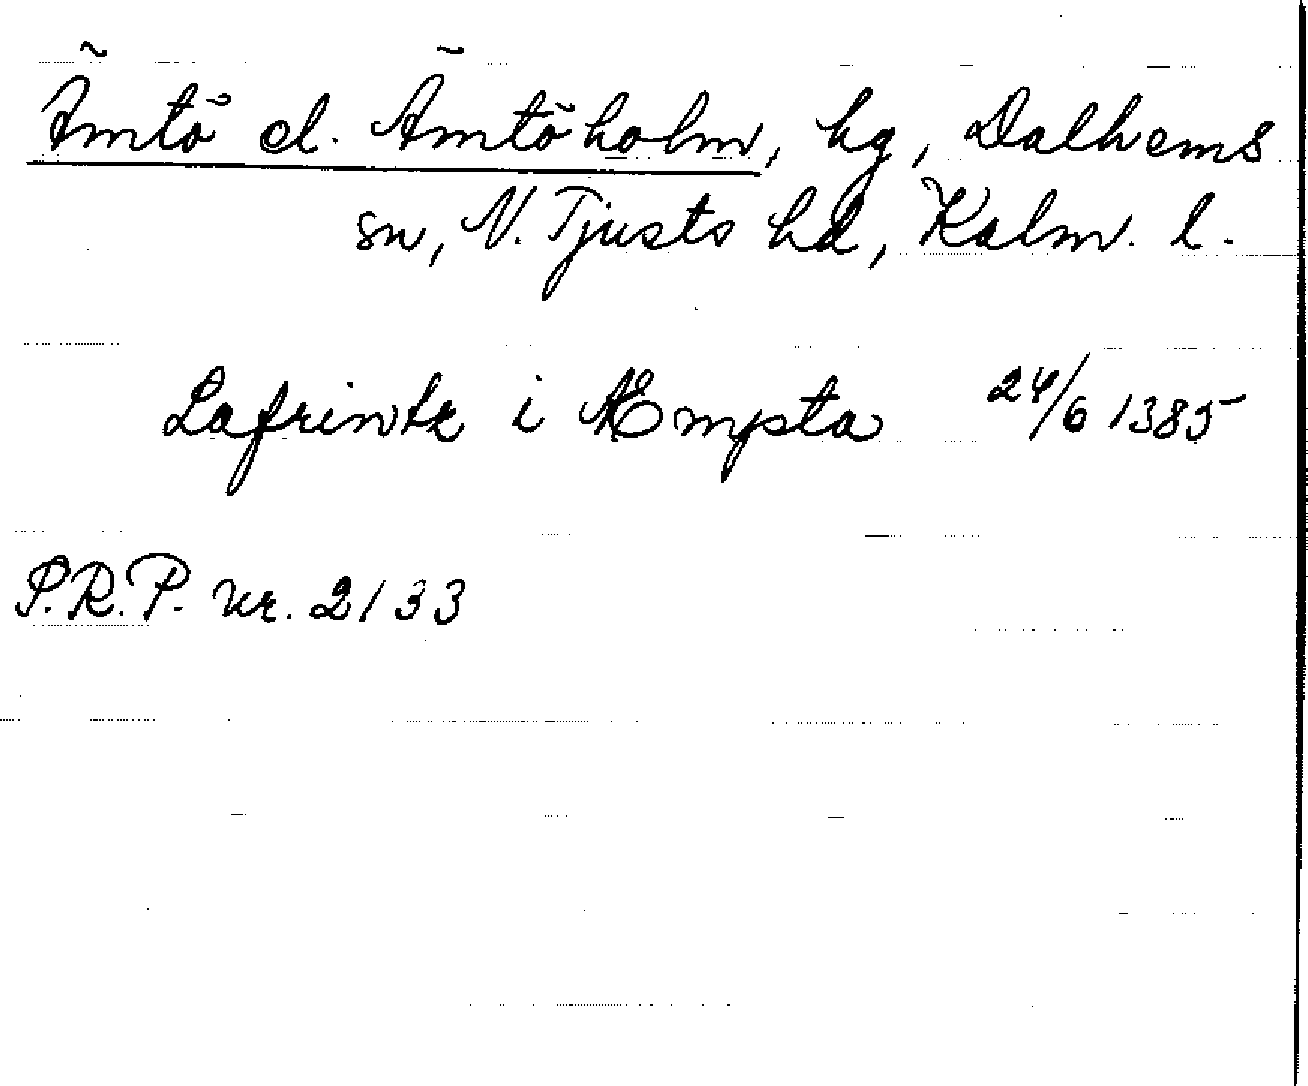 Ämtö el. Ämtöholm, hg, Dalhems
sn, N. Tjusts hd, Kalm. l.
Lafrintz i Æmpsta 24/6 1385
P.R.P. nr. 2133